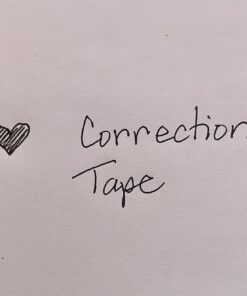 Correction
Tape